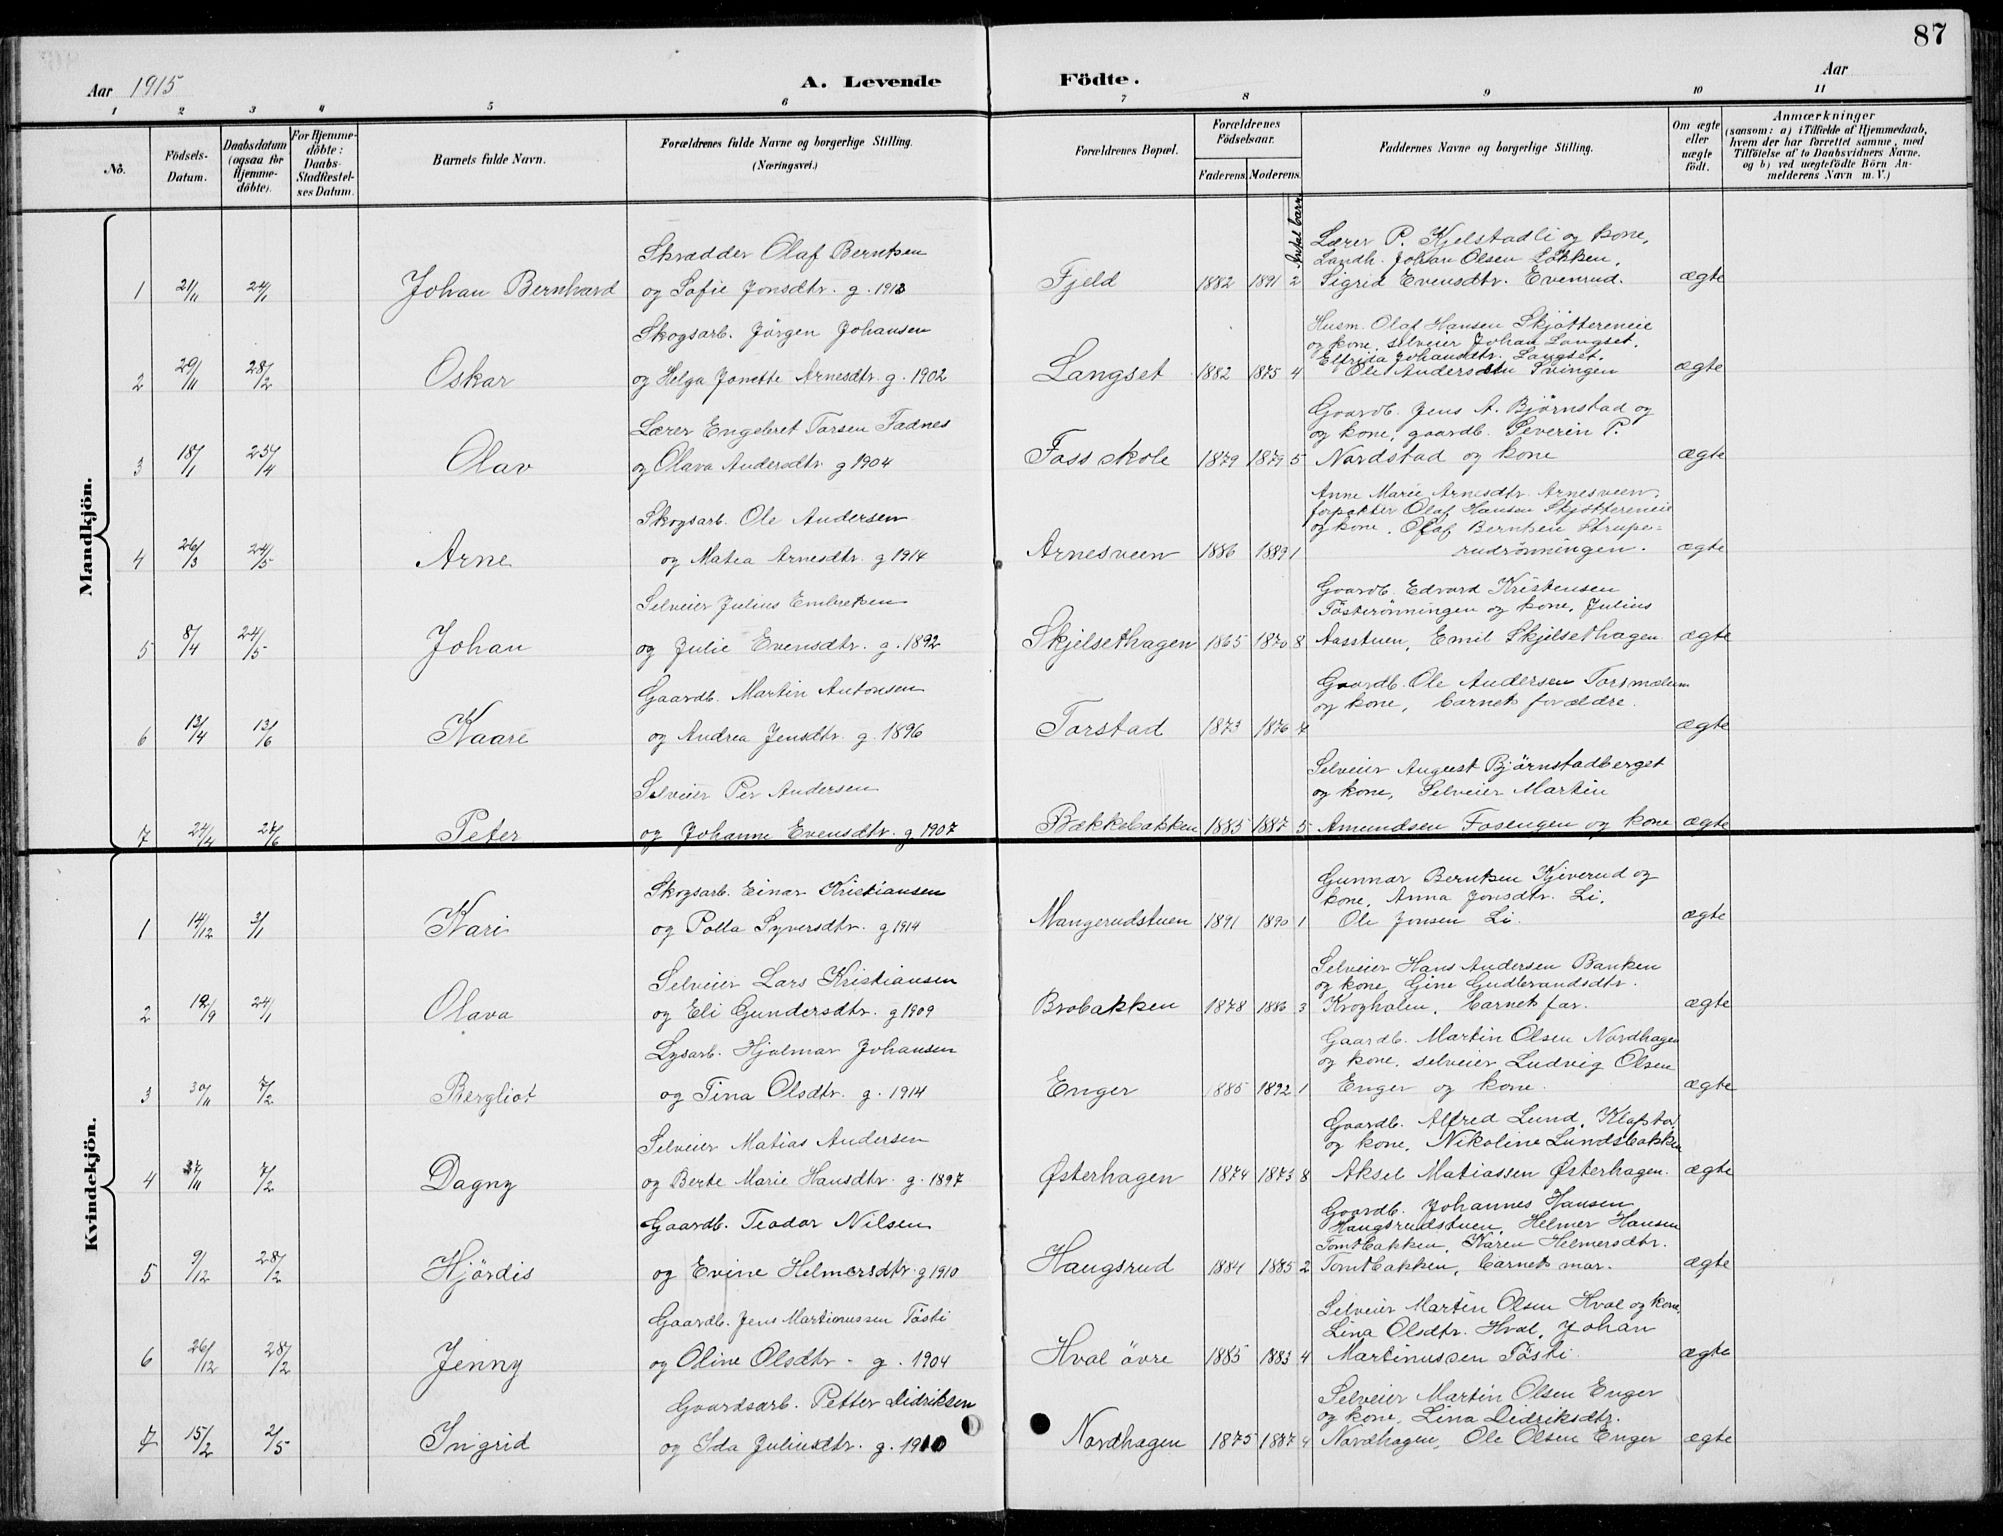 87
Aar 1915
A. Levende Födte.
Aar
1 2 3 4 5 6 7 8 9 10 11
No.
Födsels-Datum.
Daabsdatum (ogsaa for Hjemmedöbte).
For Hjemmedöbte: Daabs-Stadfestelses Datum.
Barnets fulde Navn.
Forældrenes fulde Navne og borgerlige Stilling. (Næringsvei.)
Forældrenes Bopæl.
Forældrenes Födselsaar.
Faderens. Moderens.
Antal barn
Faddernes Navne og borgerlige Stilling.
Om ægte eller uægte födt.
Anmærkninger
(saasom: a) i Tilfælde af Hjemmedaab, hvem der har forrettet samme, med Tilföielse af to Daabsvidners Navne. og b) ved uægtefödte Börn Anmelderens Navn m. V.)
Mandkjön.
Skrædder Olaf Berntsen
Lærer P. Kjelstadli og kone,
Landh. Johan Olsen Løkken,
1 21/11 24/1 Johan Bernhard og Sofie Jonsdtr. g. 1913 Fjeld 1882 1891 2 Sigrid Evensdtr. Evenrud. ægte
Skogsarb. Jørgen Johansen
Husm. Olaf Hansen Skjøttereneie
og kone, selveier Johan Langset,
Elfrida Johansdtr. Langset,
2 29/11 28/2 Oskar og Helga Jonette Arnesdtr. g. 1902 Langset 1882 1875 4 Ole Andersen Svingen ægte
Lærer Engebret Torsen Fadnes
Gaardb. Jens A. Bjørnstad og
og kone, gaardb. Severin P.
3 18/1 25/4 Olav og Olava Andersdtr g 1904 Foss skole 1879 1879 5 Nordstad og kone ægte
Skogsarb. Ole Andersen
Anne Marie Arnesdtr. Arnesveen,
forpakter Olaf Hansen Skjøttereneie
og kone, Olaf Berntsen Strupe-
4 26/3 24/5 Arne og Matea Arnesdtr. g 1914 Arnesveen 1886 1889 1 rudrønningen. ægte
Selveier Julius Embretsen
Gaardb. Edvard Kristensen
Tøsterønningen og kone, Julius
5 8/4 24/5 Johan og Julie Evensdtr. g. 1892 Skjelsethagen 1865 1870 8 Aasstuen, Emil Skjelsethagen ægte
Gaardb. Martin Antonsen
Gaardb. Ole Andersen Torsmælum
og kone, barnets forældre.
6 13/4 13/6 Kaare og Andrea Jensdtr. g. 1896 Torstad 1873 1876 7 ægte
Selveier Per Andersen
Selveier August Bjørnstadberget
og kone, Selveier Martin
7 24/4 27/6 Peter og Johanne Evensdtr. g 1907 Bækkebakken 1885 1887 5 Amundsen Fosengen og kone ægte
Kvindekjön.
Skogsarb. Einar Kristiansen
Gunnar Berntsen Kjverud og
kone, Anna Jonsdtr. Li,
1 14/12 3/1 Kari og Polla Syversdtr. g 1914 Mangerudstuen 1891 1890 1 Ole Jonsen Li. ægte
Selveier Lars Kristiansen
Selveier Hans Andersen Banken
og kone, Gine Gudbrandsdtr.
2 12/9 24/1 Olava og Eli Gundersdtr. g 1909 Brobakken 1878 1886 3 Krogholen, barnets far. ægte
Lysarb. Hjalmar Johansen
Gaardb. Martin Olsen Nordhagen
og kone, selveier Ludvig Olsen
3 30/11 7/2 Bergliot og Tina Olsdtr. g. 1914 Enger 1885 1892 1 Enger og kone. ægte
Selveier Matias Andersen
Gaardb. Alfred Lund,
og kone, Nikoline Lundsbakken
4 27/11 7/2 Dagny og Berte Marie Hansdtr. g. 1897 Østerhagen 1874 1873 8 Aksel Matiassen Østerhagen. ægte
Gaardb. Teodor Nilsen
Gaardb. Johannes Hansen
Haugsrudstuen, Helmer Hansen
Tomtbakken, Karen Helmersdtr.
5 9/12 28/2 Hjørdis og Evine Helmersdtr. g 1910 Haugsrud 1884 1885 2 Tomtbakken, barnets mor. ægte
Gaardb. Jens Martinussen Tøsti
Selveier Martin Olsen Hval og kone,
Lina Olsdtr. Hval, Johan
6 26/12 28/2 Jenny og Oline Olsdtr. g. 1904 Hval övre 1885 1883 4 Martinussen Tøsti. ægte
Gaardsarb. Petter Didriksen
Selveier Martin Olsen Enger
og kone, Lina Didriksdtr.
7 15/2 2/5 Ingrid og Ida Juliusdtr. g. 1910 Nordhagen 1875 1887 4 Nordhagen, Ole Olsen Enger ægte